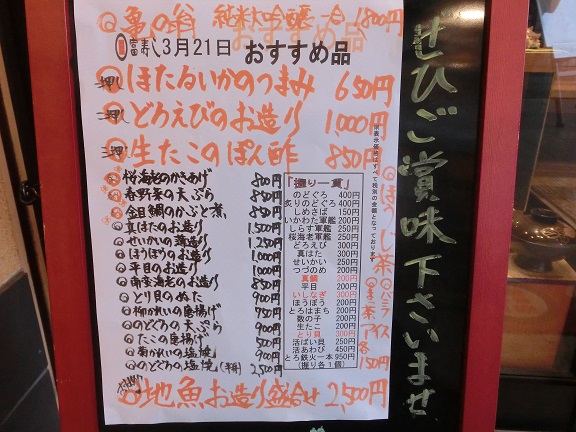 亀の翁 純米大吟醸 一合 1,800円
富寿し 3月21日 おすすめ品
押し ほたるいかのつまみ 650円
二押し どろえびのお造り 1,000円
三押 生たこのぽん酢 850円
桜海老のかきあげ 800円
春野菜の天ぷら 850円
金目鯛のかぶと煮 850円
真はたのお造り 1,500円
せいかいの薄造り 1,250円
ほうぼうのお造り
平目のお造り
南蛮海老のお造り 850円
とり貝のぬた 900円
柳かれいの唐揚げ
のどぐろの天ぷら
たこの唐揚げ
柳かれいの塩焼 900円
のどぐろの塩焼(半身) 2,500円
地魚お造り盛合せ 2,500円
「握り一貫」
のどぐろ 400円
炙りのどぐろ 400円
しめさば 150円
いかわた軍艦 200円
しらす軍艦 250円
桜海老軍艦 250円
どろえび 300円
真はた 300円
せいかい 250円
つづのめ 200円
真鯛 200円
平目 200円
いしなぎ 300円
ほうぼう 200円
とろはまち 200円
数の子 200円
生たこ 200円
とり貝 300円
活ばい貝 250円
活あわび 450円
とろ鉄火一本 950円
(握り各1個)
※表示価格はすべて税別の金額となっております
ほうじ茶
バニラ
まっ茶
アイス
各150円
ぜひご賞味下さいませ